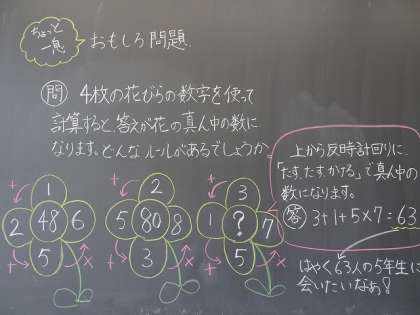 ちょっと
一息
おもしろ問題.
問 4枚の花びらの数字を使って
計算すると、答えが花の真ん中の数に
なります。どんなルールがあるでしょうか。
上から反時計回りに
「たす、たす、かける」で真ん中の
数になります。
答 3+1+5×7=63
はやく63人の5年生に
会いたいなぁ!
+ 1
2 48 6
+ 5 ×
+ 2
5 80 8
+ 3 ×
+ 3
1 ? 7
+ 5 ×